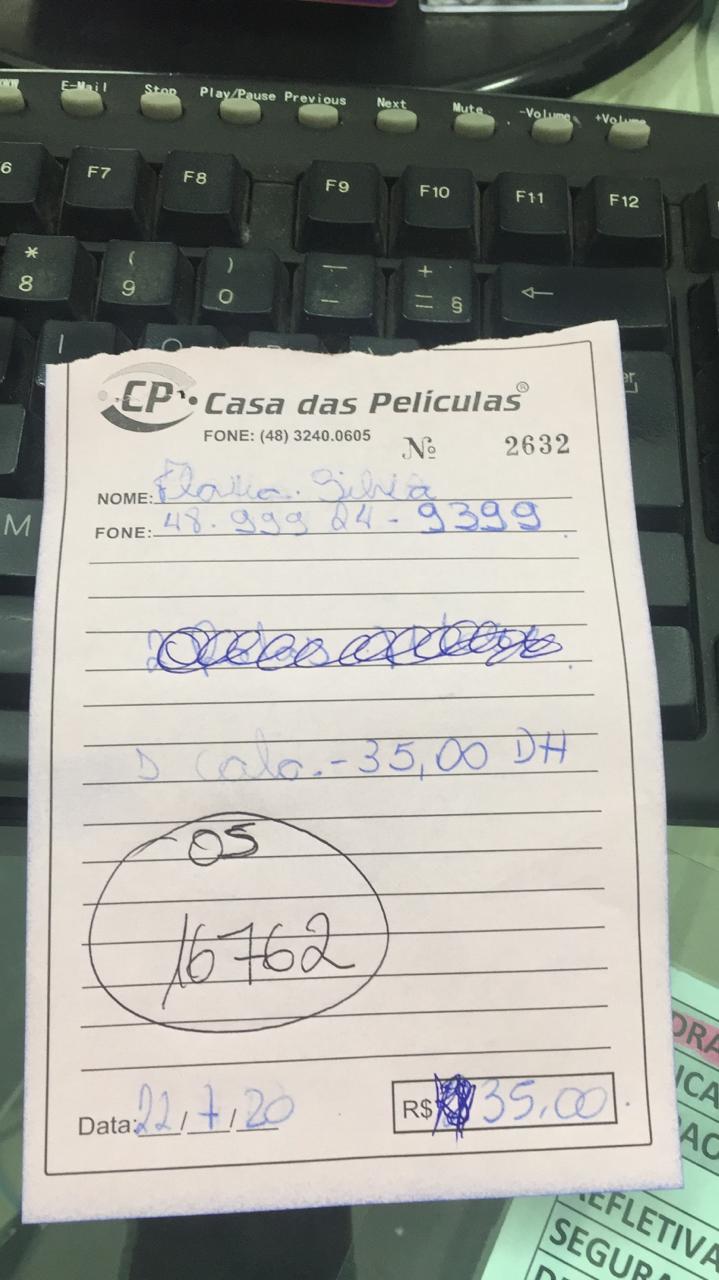 E-Mail Stop Play/Pause Previous Next Mute -Volume +Volume
6 F7 F8 F9 F10 F11 F12
* ( ) — +
8 9 0 – = § ←
M
CP Casa das Películas®
FONE: (48) 3240.0605 Nº 2632
NOME: Flavia. Silvia
FONE: 48. 999 24-9399
-35,00 DH
OS
16762
Data: 22/7/20 R$ 35,00
REFLETIVA
SEGURA